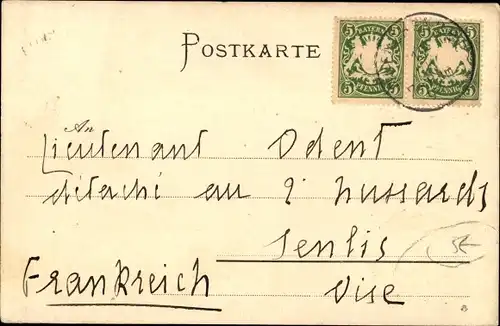 POSTKARTE
BAYERN
5 5
PFENNIG
BAYERN
5 5
PFENNIG
An
Lieutenant Odent
détaché au 2e hussards
Senlis
Oise
Frankreich
5E